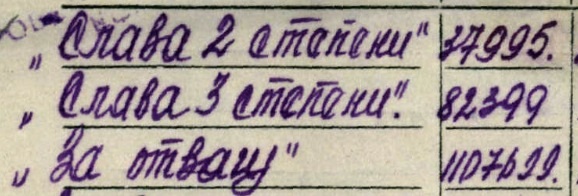 „Слава 2 степени" 37995.
„Слава 3 степени". 82399
„За отвагу" 1107699.